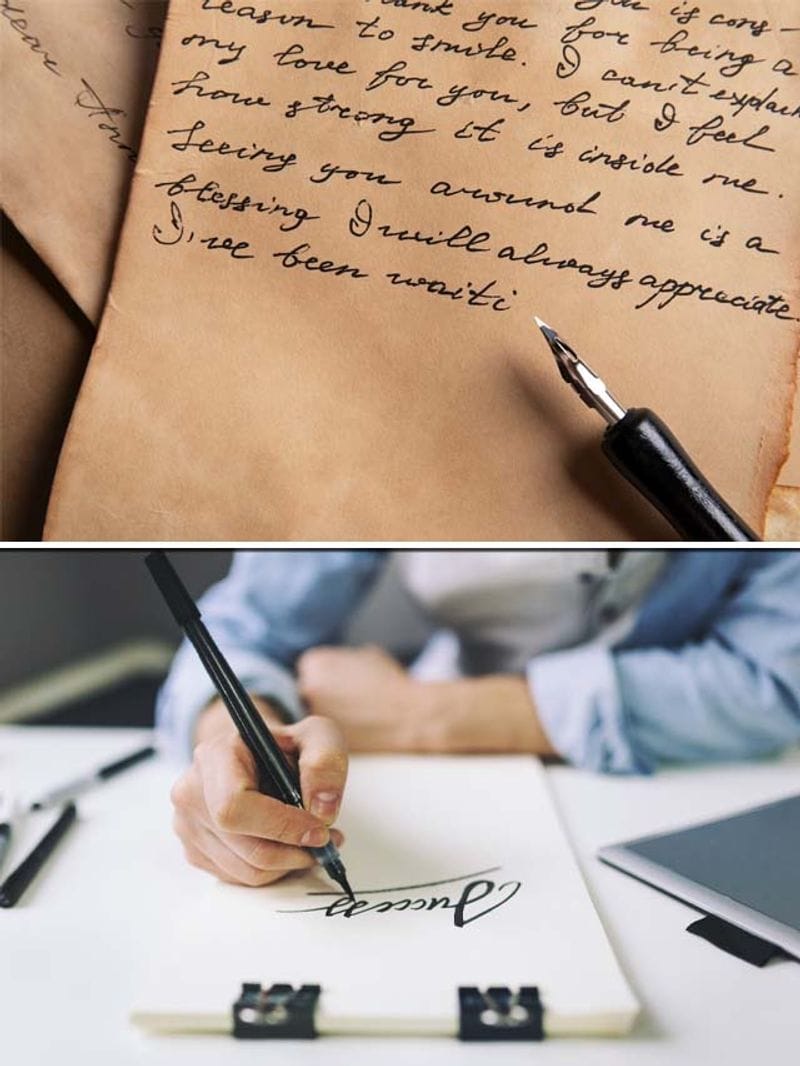 Dear Ann
ank you
you is cons-
reason to smile. for being a
my love for you, I can't explain
how strong it is inside me. but I feel
Seeing you around me is a
blessing I will always appreciate.
I've been waiti
Success